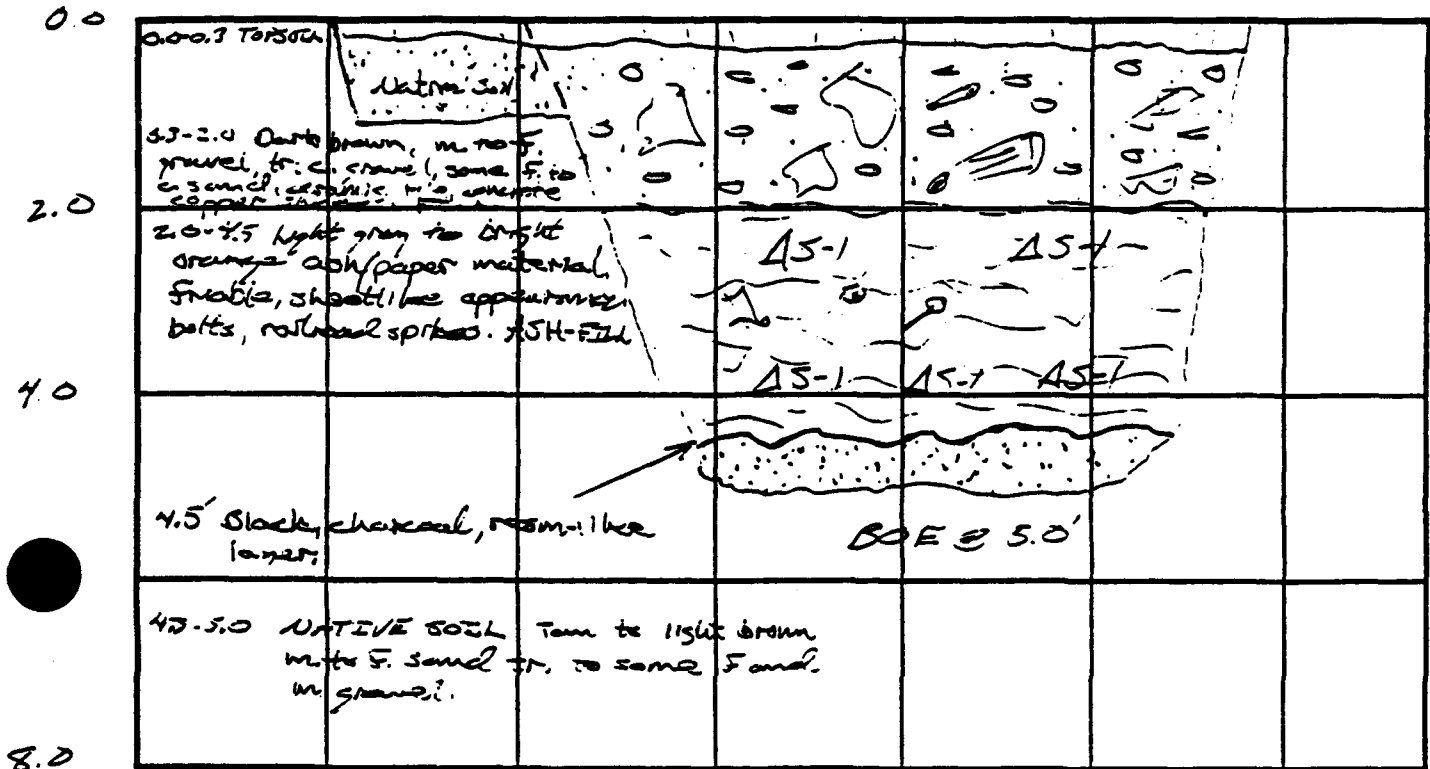 0.0
0.0-0.3 Topsoil
Native Soil
0.3-2.0 Dark brown, m. to f.
gravel, tr. c. gravel, some f. to
c. sand, ceramic, concrete
copper
2.0
2.0-4.5 Light gray to bright
orange ash/paper material,
friable, sheetlike appearance,
bolts, railroad spikes. ASH-FILL
ΔS-1 ΔS-1
ΔS-1 ΔS-1 ΔS-1
4.0
4.5' Black, charcoal, resin-like
layer.
BOE @ 5.0'
4.5-5.0 NATIVE SOIL Tan to light brown
m. to f. sand tr. to some f. and
m. gravel.
8.0